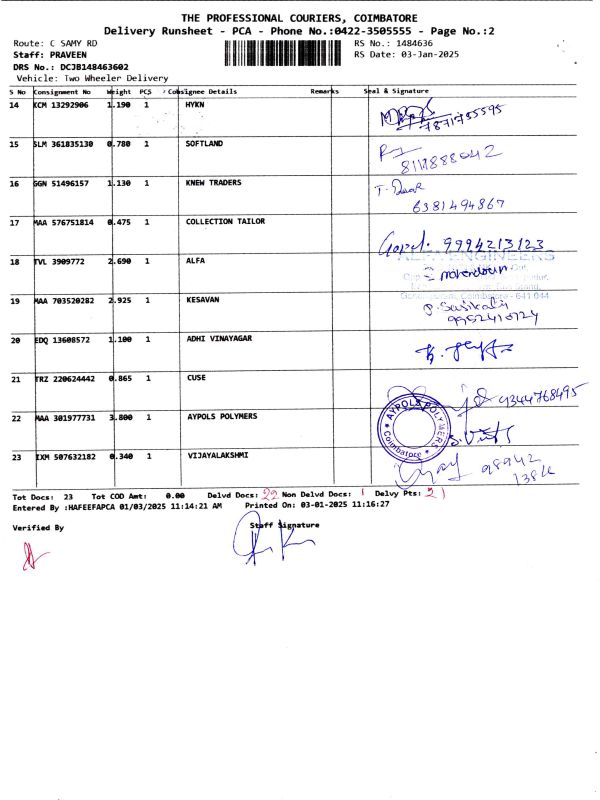 THE PROFESSIONAL COURIERS, COIMBATORE
Delivery Runsheet - PCA - Phone No.:0422-3505555 - Page No.:2
Route: C SAMY RD RS No.: 1484636
Staff: PRAVEEN RS Date: 03-Jan-2025
DRS No.: DCJB148463602
Vehicle: Two Wheeler Delivery
S No Consignment No Weight PCS Consignee Details Remarks Seal & Signature
14 KCM 13292906 1.190 1 HYKN
7871755595
15 SLM 361835130 0.780 1 SOFTLAND
8111888042
16 GGN 51496157 1.130 1 KNEW TRADERS
6381494867
17 MAA 576751814 0.475 1 COLLECTION TAILOR
Gopal. 9994213123
18 TVL 3909772 2.690 1 ALFA
ALFA ENGINEERS
Coimbatore - 641 044
19 MAA 703520282 2.925 1 KESAVAN
P. Sasikala
9952410724
20 EDQ 13608572 1.100 1 ADHI VINAYAGAR
21 TRZ 220624442 0.865 1 CUSE
9344768495
22 MAA 301977731 3.800 1 AYPOLS POLYMERS
AYPOLS POLYMERS
Coimbatore
23 IXM 507632182 0.340 1 VIJAYALAKSHMI
98942
Tot Docs: 23 Tot COD Amt: 0.00 Delvd Docs: 22 Non Delvd Docs: 1 Delvy Pts: 21
Entered By :HAFEEFAPCA 01/03/2025 11:14:21 AM Printed On: 03-01-2025 11:16:27
Verified By Staff Signature